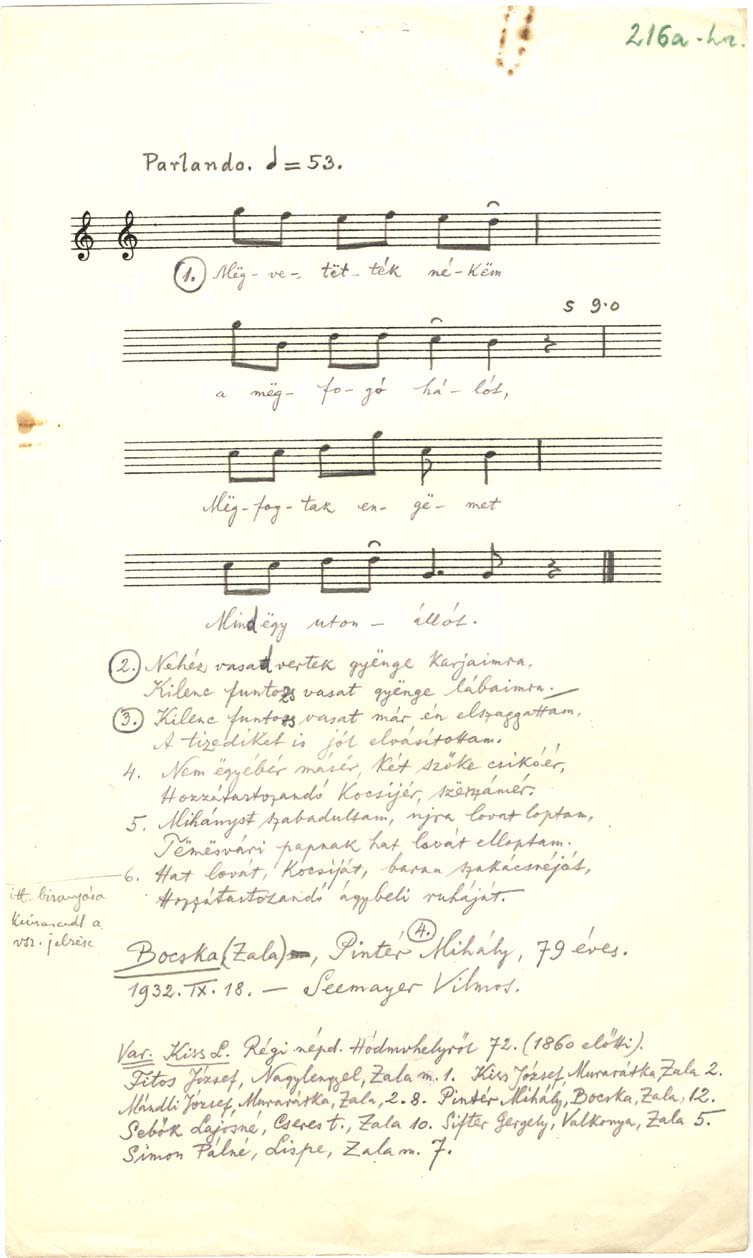 216a-hr.
Parlando. ♩=53.
1. Mëg-ve-tët-ték né-këm
5 9·0
a mëg-fo-gó há-lót,
Mëg-fog-tak en-gë-met
Mindëgy uton-állót.
2. Nehéz vasad vertek gyënge karjaimra,
Kilenc funtos vasat gyënge lábaimra.
3. Kilenc funtos vasat már én elszaggattam,
A tizediket is jól elvásítottam.
4. Nem ëgyébér másér, két szőke csikóér,
Hozzátartozandó kocsijér, szërszámér.
5. Mihányst szabadultam, ujra lovat loptam,
Tëmësvári papnak hat lovát elloptam.
6. Hat lovát, kocsiját, barna szakácsnéját,
Hozzátartozandó ágybeli ruháját.
itt
a
vsz. jelzése
Bocska (Zala), Pintér Mihály, 79 éves.
4.
1932. IX. 18. — Seemayer Vilmos.
Var. Kiss L. Régi népd. Hódmvhelyről 72. (1860 előtti).
Fitos József, Nagylengyel, Zala m. 1. Kiss József, Murarátka, Zala 2.
Mándli József, Murarátka, Zala, 2.8. Pintér Mihály, Bocska, Zala, 12.
Sebők Lajosné, Cseres t., Zala 10. Sifter Gergely, Valkonya, Zala 5.
Simon Pálné, Lispe, Zala m. 7.